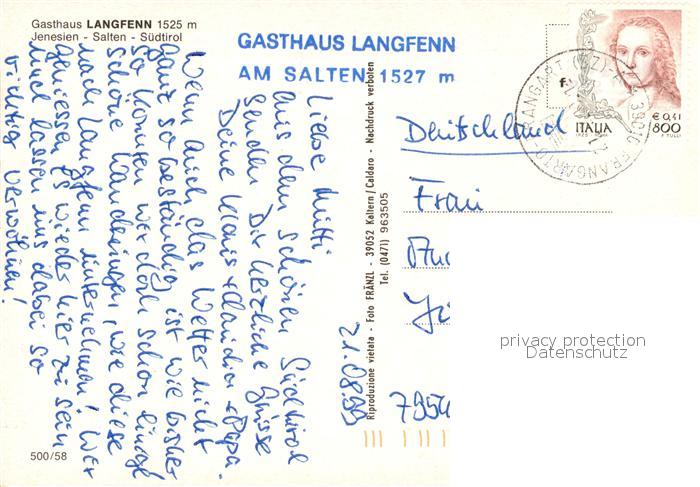 Gasthaus LANGFENN 1525 m
Jenesien - Salten - Südtirol
GASTHAUS LANGFENN
AM SALTEN 1527 m
Liebe Mutti
aus dem schönen Südtirol
senden Dir herzliche Grüsse
Deine Klaus + Claudia + Papa.
Wenn auch das Wetter nicht
ganz so beständig ist wie bisher
so konnten wir doch schon einige
schöne Wanderungen, wie diese
nach Langfenn unternehmen! Wir
geniessen es wieder hier zu sein
und lassen uns dabei so
richtig verwöhnen!
21.08.99
Riproduzione vietata - Foto FRÄNZL - 39052 Kaltern / Caldaro - Nachdruck verboten
Tel. (0471) 963505
ITALIA
€ 0,41
800
Deutschland
Frau
7954
privacy protection
Datenschutz
500/58